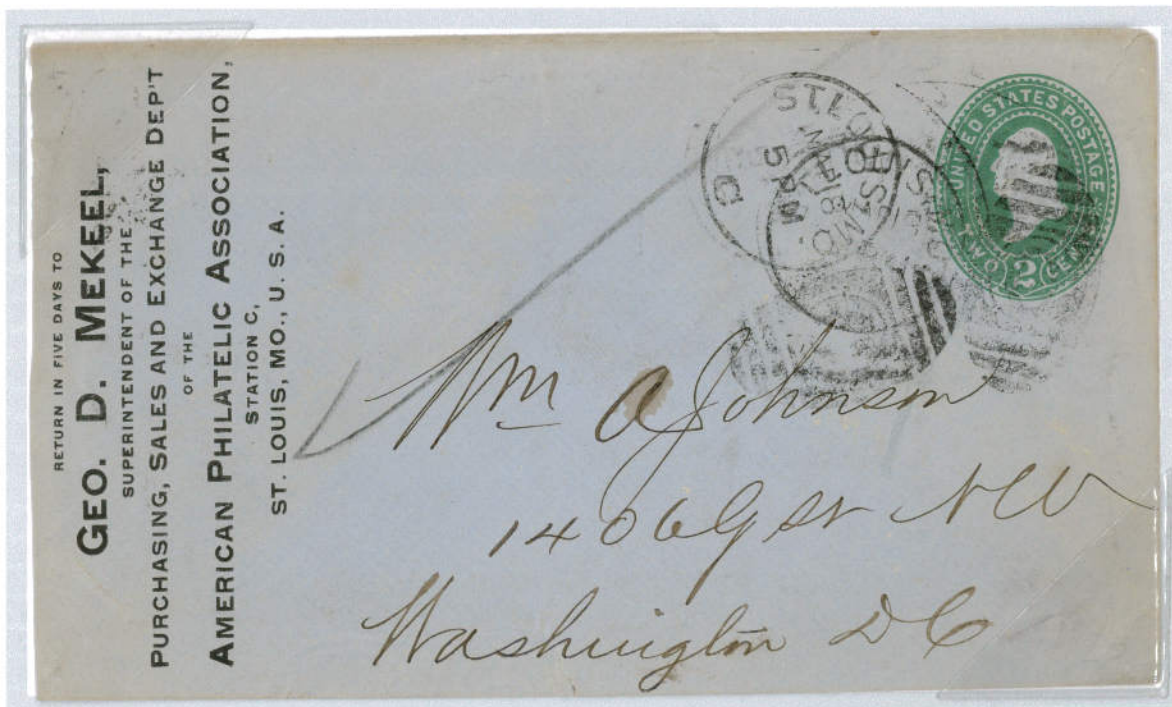 RETURN IN FIVE DAYS TO
GEO. D. MEKEEL,
SUPERINTENDENT OF THE
PURCHASING, SALES AND EXCHANGE DEP'T
OF THE
AMERICAN PHILATELIC ASSOCIATION,
STATION C,
ST. LOUIS, MO., U. S. A.
UNITED STATES POSTAGE
TWO 2 CENTS
ST. LOUIS, MO.
5 PM
C
Wm A Johnson
1406 G St NW
Washington D C